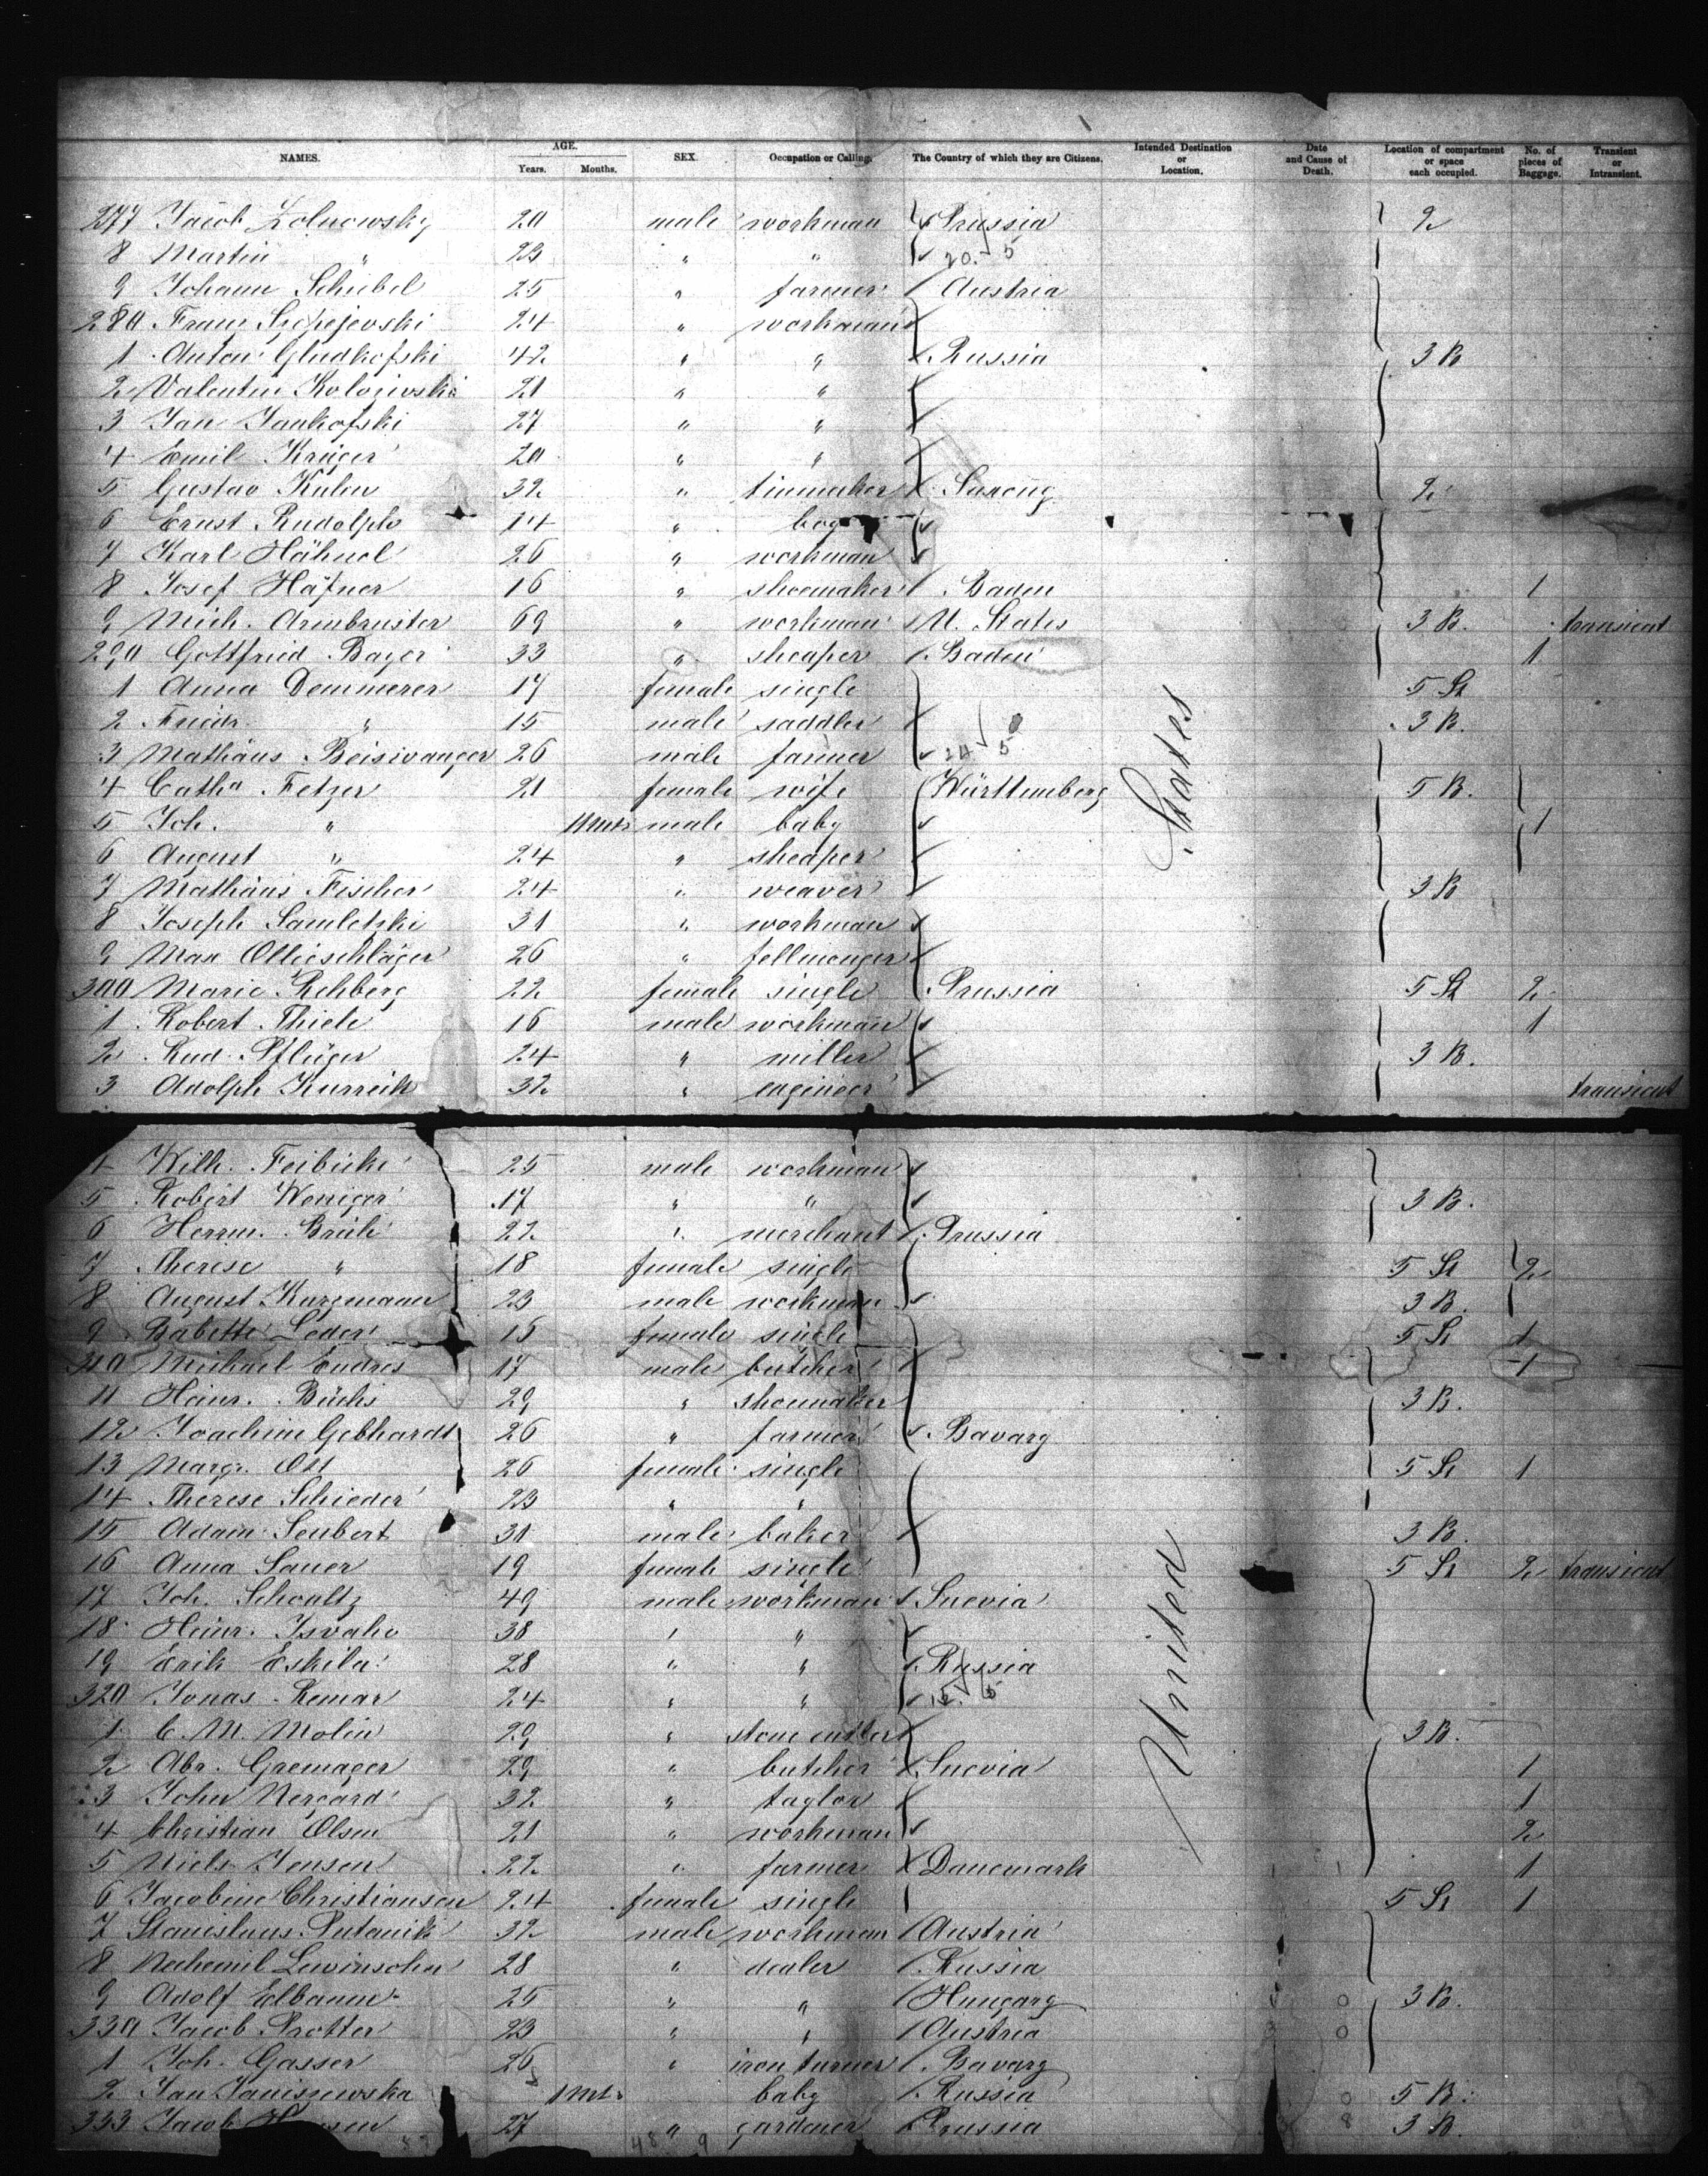 NAMES. AGE. Years. Months. SEX. Occupation or Calling. The Country of which they are Citizens. Intended Destination or Location. Date and Cause of Death. Location of compartment or space each occupied. No. of pieces of Baggage. Transient or Intransient.
277 Jacob Zolnowsky 20 male workman Prussia 2
8 Martin " 23 " " 20. 5
9 Johann Schibel 25 " farmer Austria
280 Franz 24 " workman
1 Anton Gludkofski 42 " " Russia 3 B
2 Valentin 21 " "
3 Jan Jankofski 27 " "
4 Emil Krüger 20 " "
5 Gustav Kulen 32 " tinmaker Saxony 2
6 Ernst Rudolph 14 " boy
7 Karl Hähnel 26 " workman
8 Josef Häfner 16 " shoemaker Baden 1
9 Mich. Armbruster 69 " workman U. States 3 B. transient
290 Gottfried Bayer 33 " sheaper Baden 1
1 Anna Demmerer 17 female single 5 St
2 Friedr. " 15 male saddler 3 B.
3 Mathäus Beiswanger 26 male farmer 24 5
4 Catha Fetzer 21 female wife Württemberg 5 B.
5 Joh. " male baby 1
6 August " 24 " sheaper
7 Mathäus Fischer 24 " weaver 3 B
8 Joseph Samletzki 31 " workman
9 Max 26 " fellmonger
300 Marie Rehberg 22 female single Prussia 5 St 2
1 Robert Thiele 16 male workman 1
2 Rud. Pflüger 24 " miller 3 B.
3 Adolph Kurreik 32 " engineer transient
States
4 Wilh. Feibicke 25 male workman
5 Robert Weniger 17 " " 3 B.
6 Herrm. Brüh 22 " merchant Prussia
7 Therese " 18 female single 5 St 2
8 August Kurzmann 23 male workman 3 B.
9 Babette Leder 15 female single 5 St 1
310 Michael Endres 17 male butcher 1
11 Heinr. Büchs 29 " shoemaker 3 B.
12 Joachim Gebhardt 26 " farmer Bavary
13 Margr. Ott 26 female single 5 St 1
14 Therese Schieder 23 " "
15 Adam Seubert 30 male baker 3 B.
16 Anna Sauer 19 female single 5 St 2 transient
17 Joh. Schvaltz 49 male workman Suevia
18 Heinr. Isvaho 38 " "
19 Erik Eskila 28 " " Russia
320 Jonas Remar 24 " " 15. 5
1 C. M. Molin 29 " stone cutter 3 B.
2 Abr. Gremager 29 " butcher Suevia 1
3 John Nergard 32 " taylor 1
4 Christian Olsen 21 " workman 2
5 Niels Jensen 22 " farmer Danemark 1
6 Jacobine Christiansen 24 female single 5 St 1
7 Stanislaus Putanik 32 male workman Austria
8 Nechemil Lewinsohn 28 " dealer Russia
9 Adolf Elbaum 25 " " Hungary 3 B.
330 Jacob Protter 23 " " Austria
1 Joh. Gasser 26 " iron turner Bavary
2 Jan Janiszewska baby Russia 5 B.
333 Jacob 27 " gardener Prussia 3 B.
United
48 9